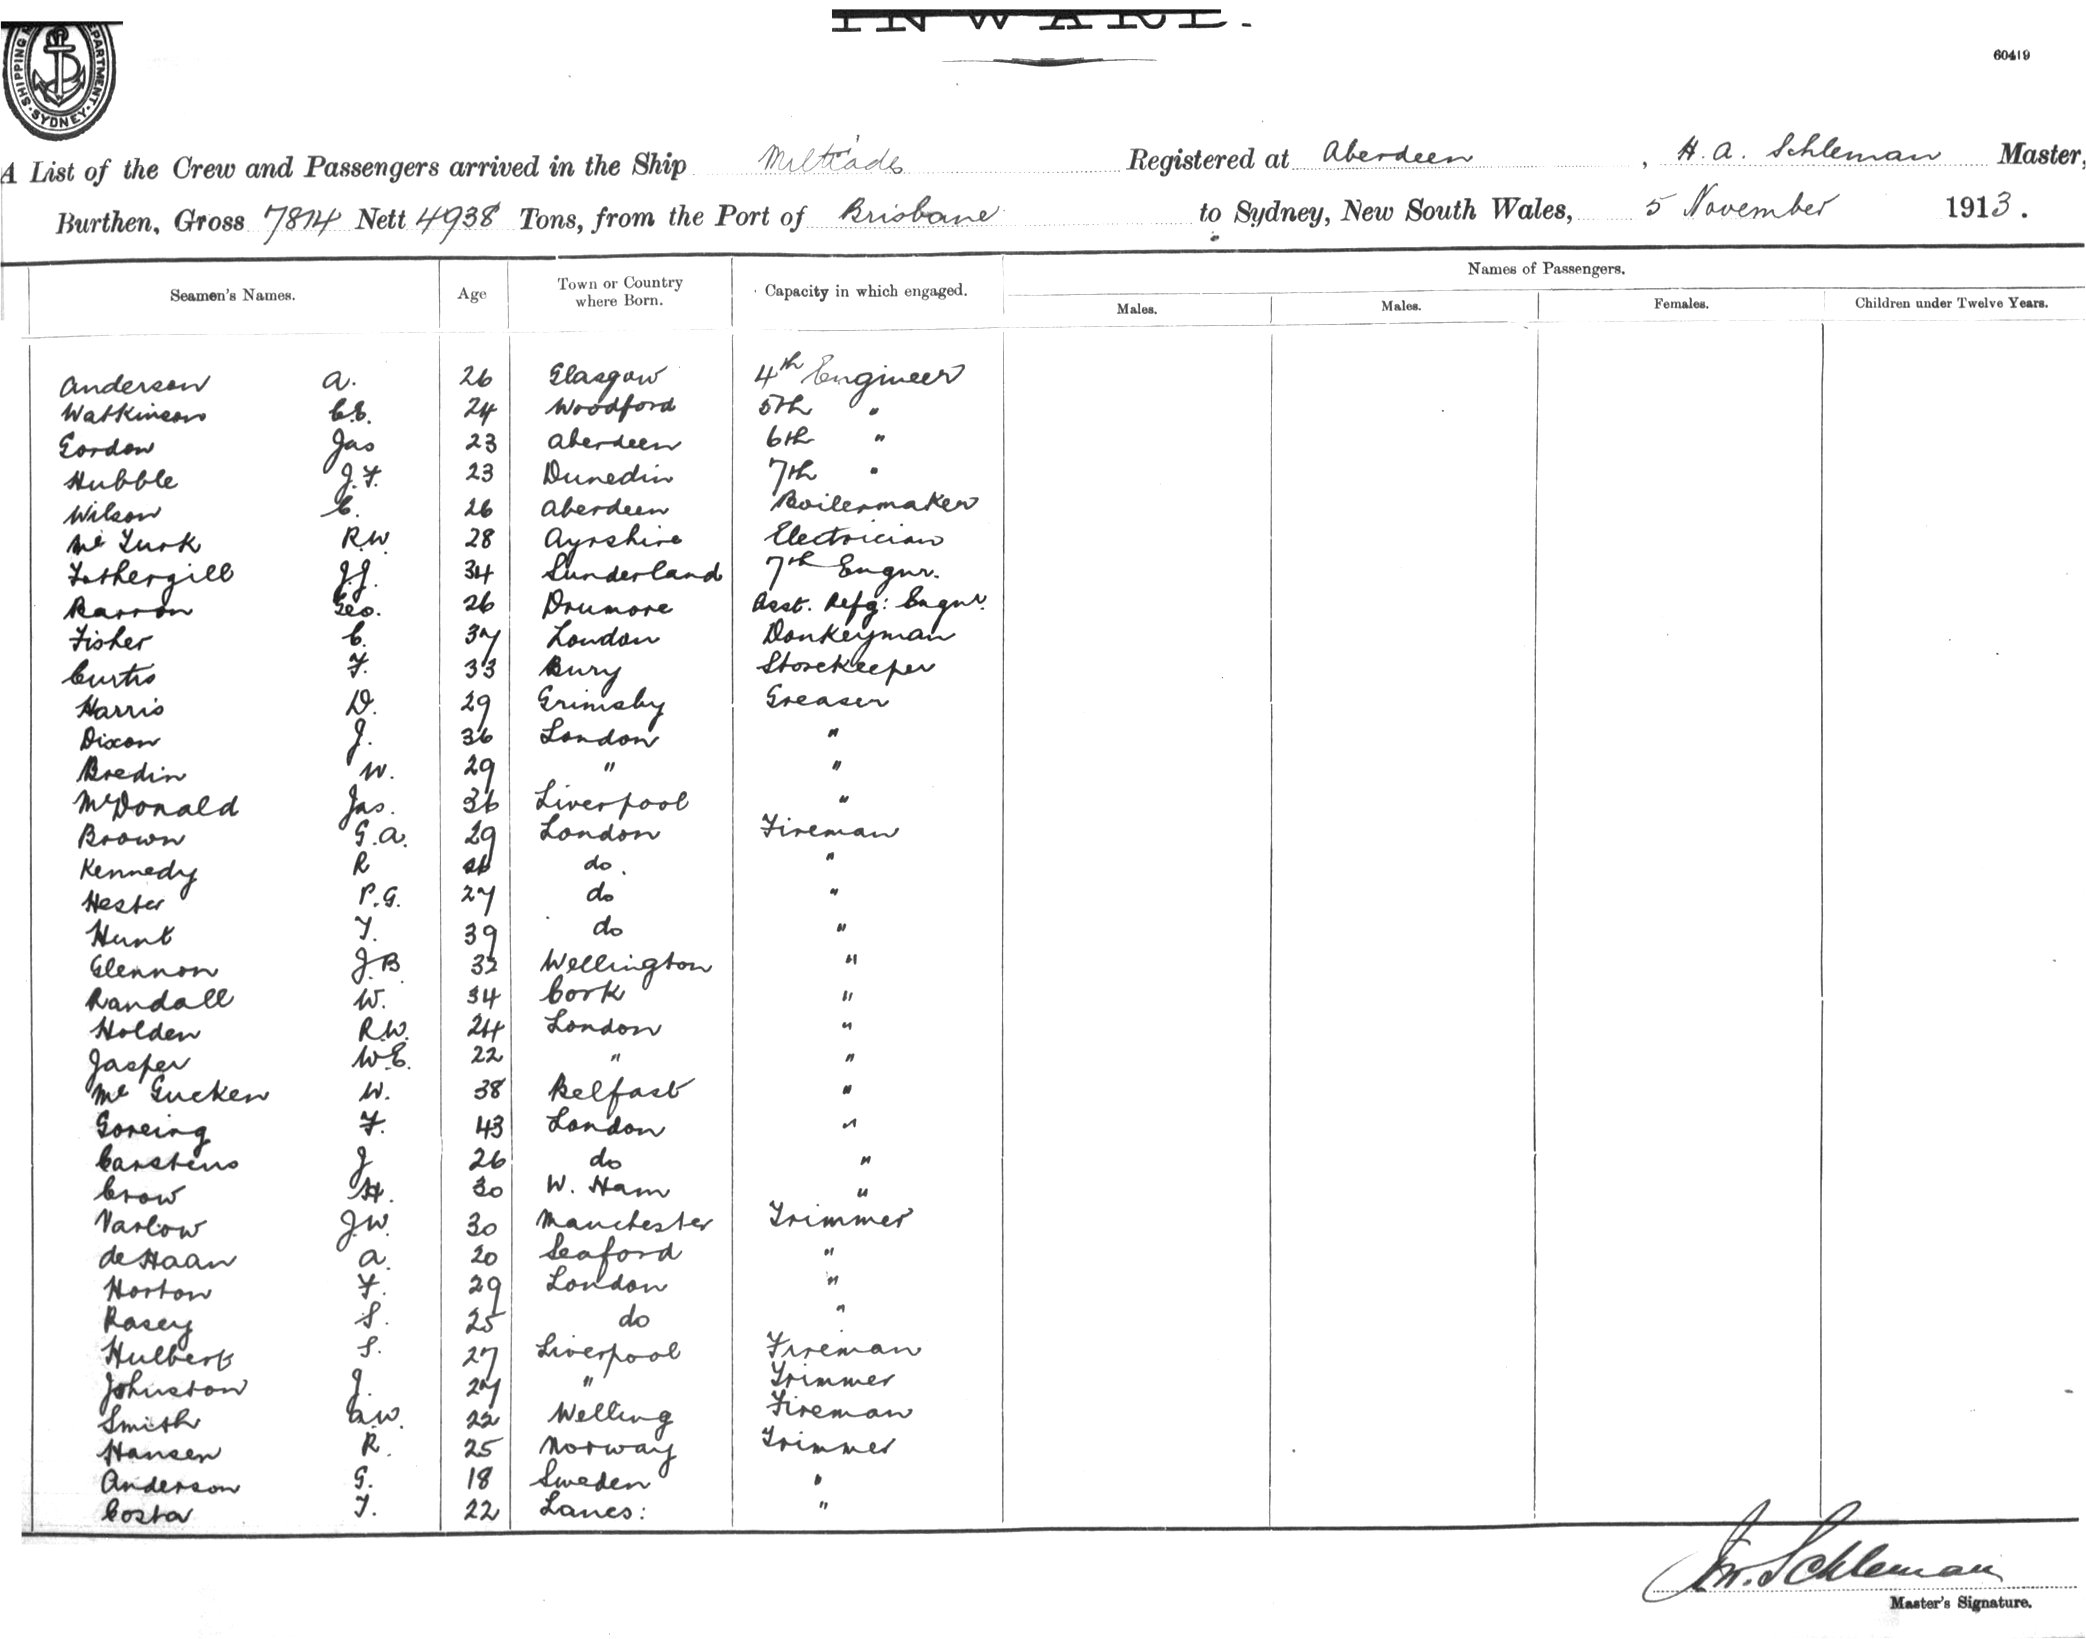 INWARD.
60419
SHIPPING DEPARTMENT. SYDNEY
A List of the Crew and Passengers arrived in the Ship Miltiades Registered at Aberdeen, H. A. Schleman Master,
Burthen, Gross 7814 Nett 4938 Tons, from the Port of Brisbane to Sydney, New South Wales, 5 November 1913.
Names of Passengers.
Seamen's Names. Age Town or Country where Born. Capacity in which engaged. Males. Males. Females. Children under Twelve Years.
Anderson A. 26 Glasgow 4th Engineer
Watkinson C.E. 24 Woodford 5th "
Gordon Jas 23 Aberdeen 6th "
Hubble J.F. 23 Dunedin 7th "
Wilson C. 26 Aberdeen Boilermaker
Mc Turk R.W. 28 Ayrshire Electrician
Fothergill J.J. 34 Sunderland 7th Engnr.
Barron Geo. 26 Drumore Asst. Refg: Engnr.
Fisher C. 37 London Donkeyman
Curtis F. 33 Bury Storekeeper
Harris D. 29 Grimsby Greaser
Dixon J. 36 London "
Bredin W. 29 " "
McDonald Jas. 36 Liverpool "
Brown G.A. 29 London Fireman
Kennedy R do. "
Hester P.G. 27 do "
Hunt T. 39 do "
Glennon J.B 32 Wellington "
Randall W. 34 Cork "
Holden R.W. 24 London "
Jasper W.E. 22 " "
Mc Gucken W. 38 Belfast "
Goreing F. 43 London "
Carstens J 26 do "
Crow H. 30 W. Ham "
Varlow J.W. 30 Manchester Trimmer
de Haan A. 20 Seaford "
Horton F. 29 London "
Rasey S. 25 do "
Hulbert S. 27 Liverpool Fireman
Johnston J. 27 " Trimmer
Smith A.W. 22 Welling Fireman
Hansen R. 25 Norway Trimmer
Anderson G. 18 Sweden "
Costa T. 22 Lancs: "
Schleman
Master's Signature.